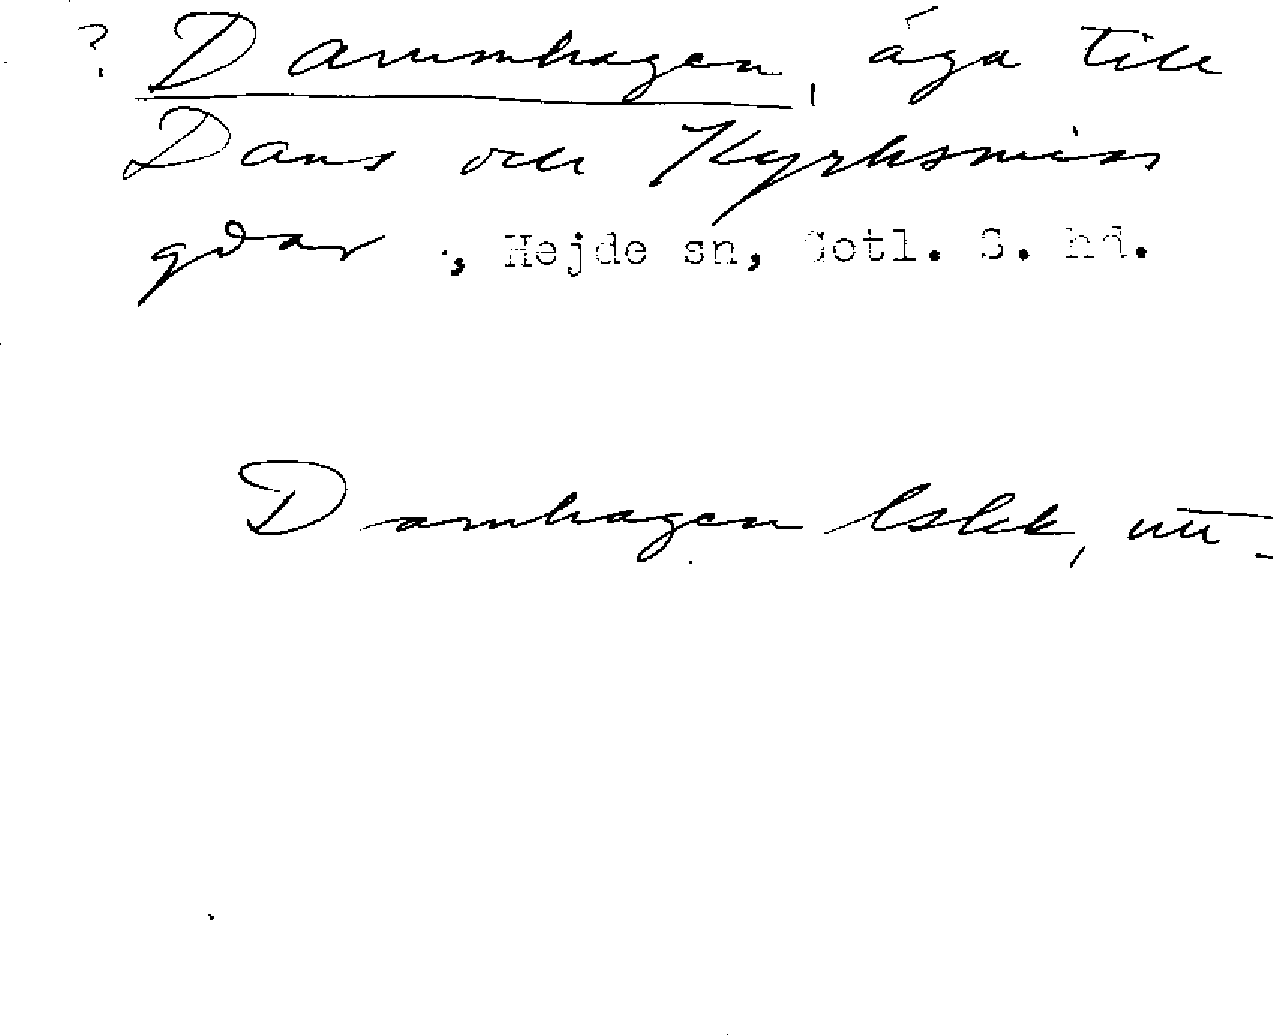 ? Dammhagen, äga till
Dans och Kyrksmiss
gdar, Hejde sn, Gotl. S. hd.
Damhagen lskk,